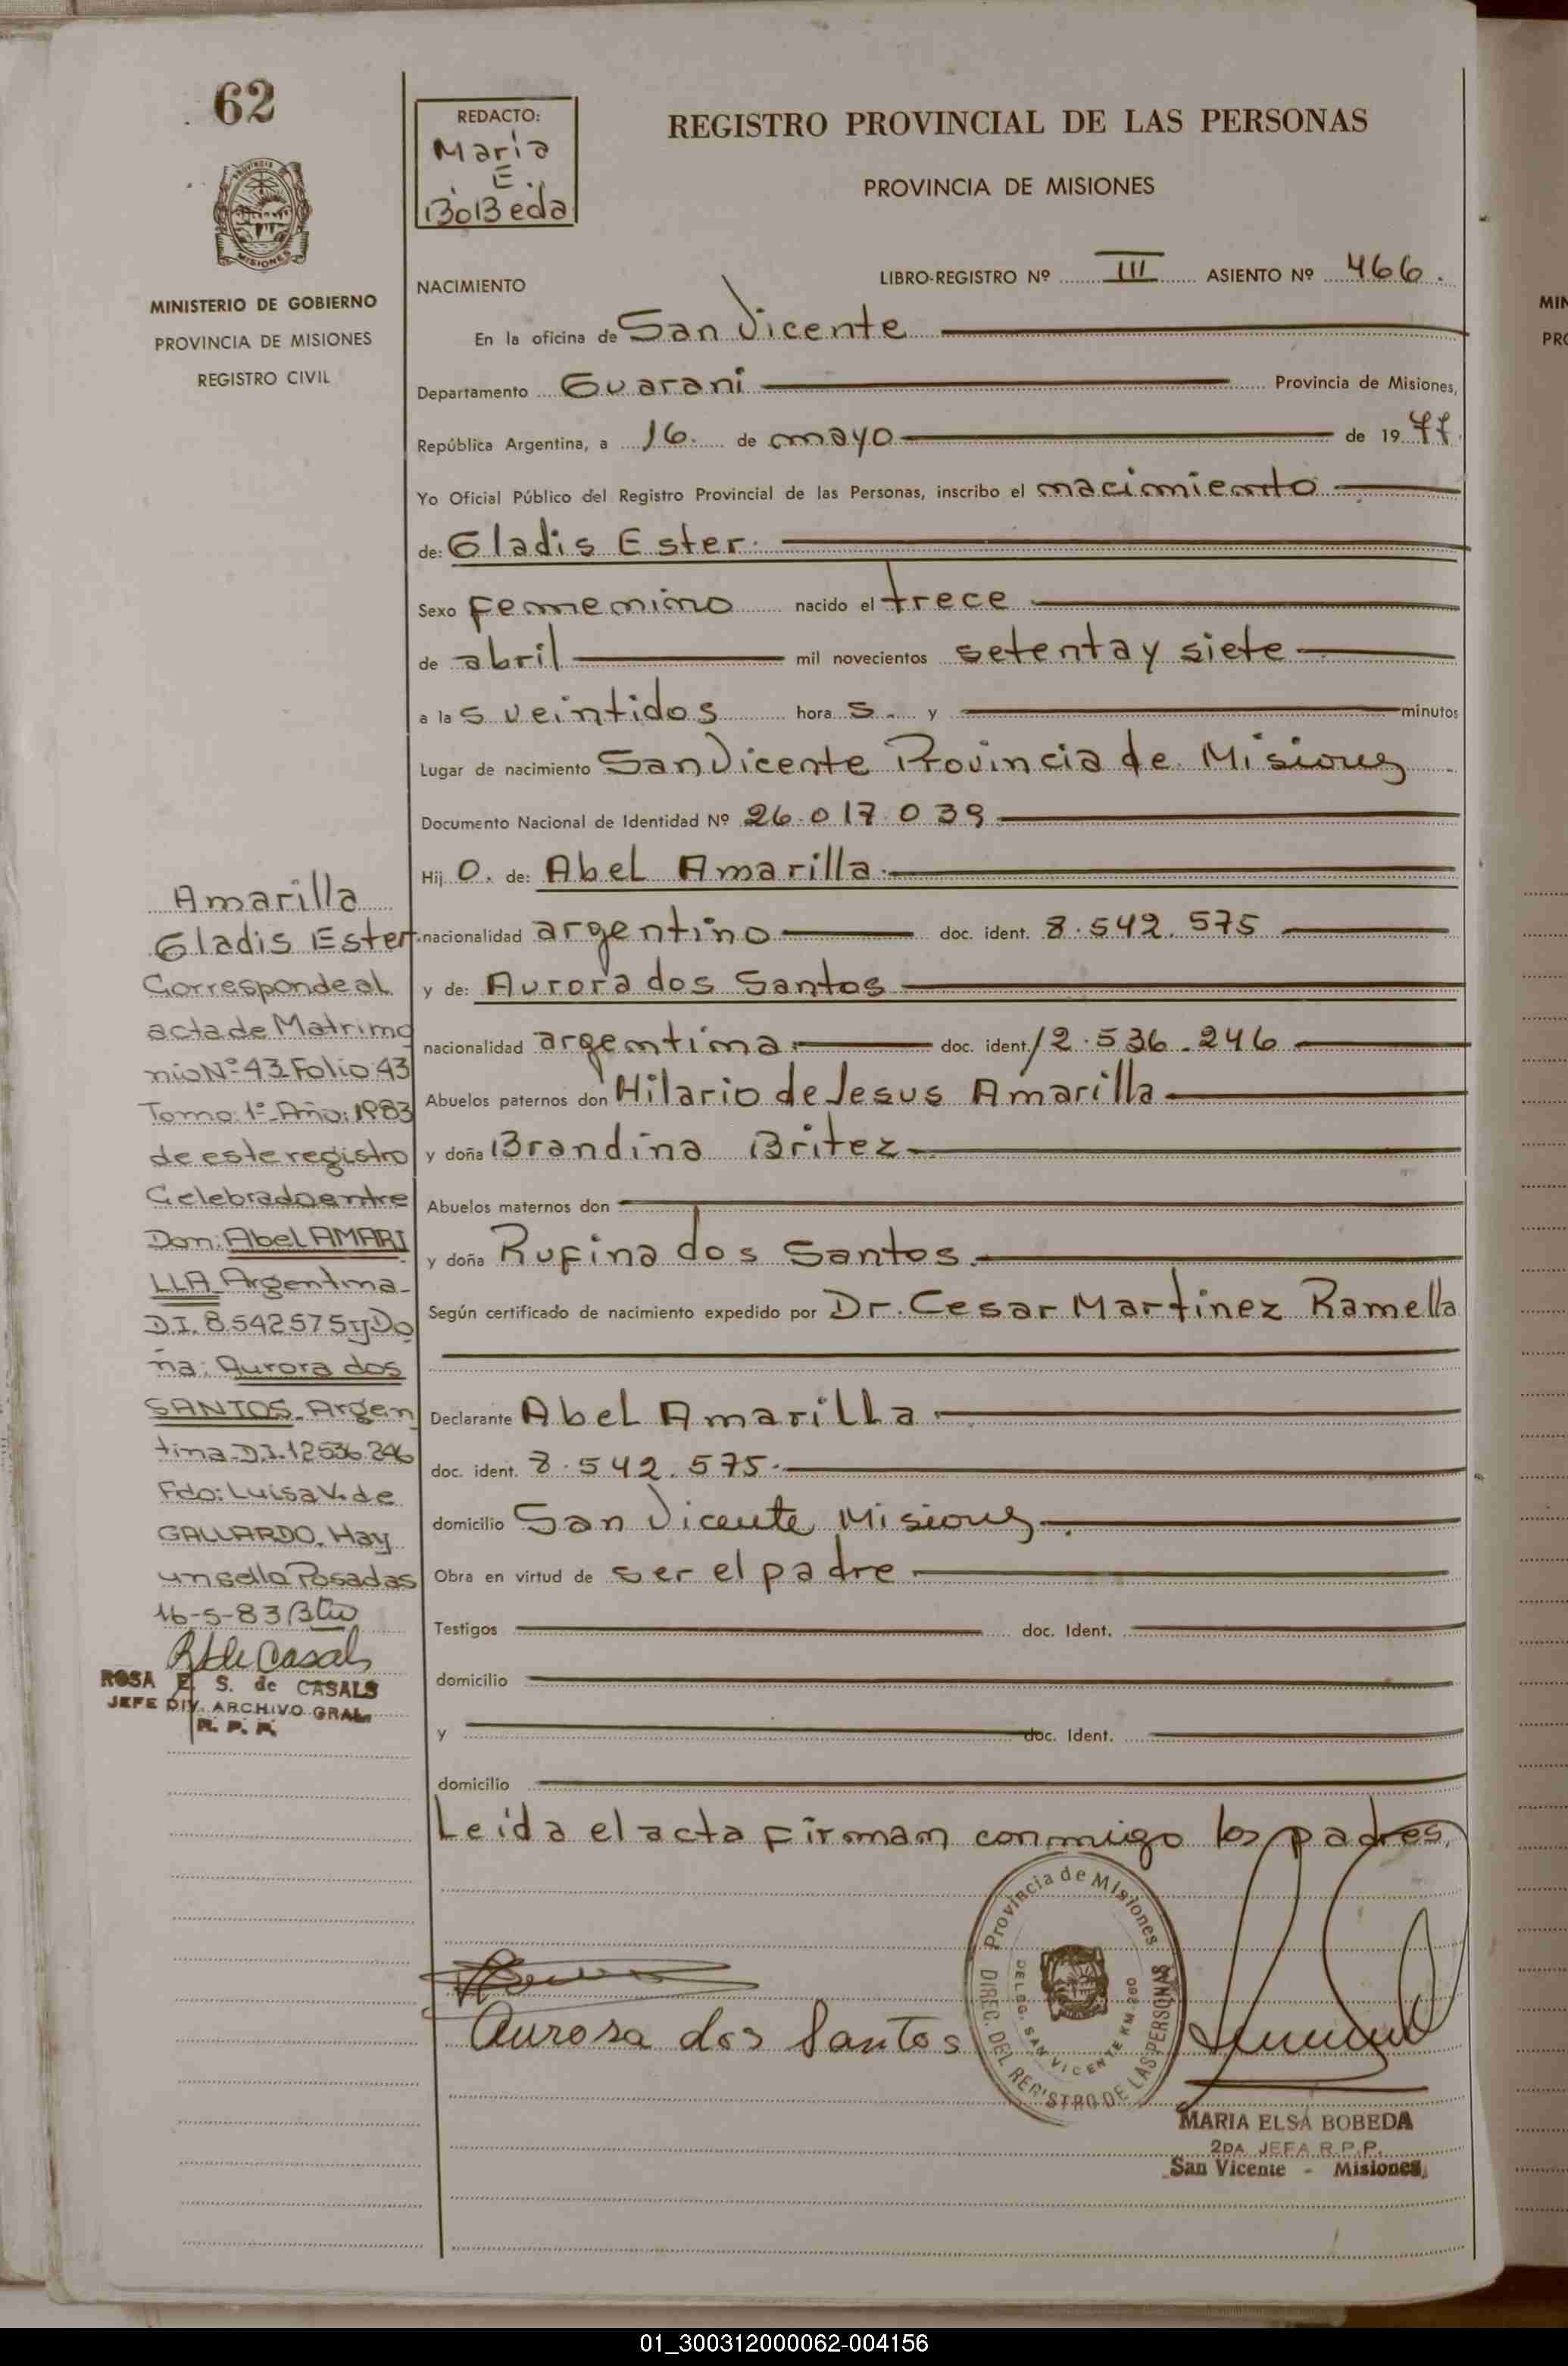 62
REDACTO:
Maria
E.
BoBeda
REGISTRO PROVINCIAL DE LAS PERSONAS
PROVINCIA DE MISIONES
MISIONES
MINISTERIO DE GOBIERNO
PROVINCIA DE MISIONES
REGISTRO CIVIL
NACIMIENTO
LIBRO-REGISTRO Nº III ASIENTO Nº 466.
En la oficina de San Vicente
Departamento Guarani Provincia de Misiones,
República Argentina, a 16. de mayo de 1977.
Yo Oficial Público del Registro Provincial de las Personas, inscribo el nacimiento
de: Gladis Ester.
Sexo Femenino nacido el trece
de abril mil novecientos setenta y siete
a las veintidos horas. y minutos
Lugar de nacimiento San Vicente Provincia de Misiones
Documento Nacional de Identidad Nº 26.017.039
Hijo. de: Abel Amarilla.
nacionalidad argentino doc. ident. 8.542.575
y de: Aurora dos Santos
nacionalidad argentina. doc. ident. 12.536.246
Abuelos paternos don Hilario de Jesus Amarilla
y doña Brandina Britez
Abuelos maternos don
y doña Rufina dos Santos.
Según certificado de nacimiento expedido por Dr. Cesar Martinez Ramella
Declarante Abel Amarilla.
doc. ident. 8.542.575.
domicilio San Vicente Misiones
Obra en virtud de ser el padre
Testigos doc. Ident.
domicilio
y doc. Ident.
domicilio
Leida el acta firman conmigo los padres.
Amarilla
Gladis Ester.
Corresponde al
acta de Matrimo
nio Nº 43 Folio 43
Tomo: 1º Año: 1983
de este registro
Celebrado entre
Don: Abel AMARI
LLA Argentina
D.I. 8542575 y Do
ña: Aurora dos
SANTOS. Argen
tina D.I. 12536.246
Fdo: Luisa V. de
GALLARDO. Hay
un sello Posadas
16-5-83
R S de Casals
ROSA E. S. de CASALS
JEFE DIV. ARCHIVO GRAL.
R. P. P.
Aurora dos Santos
Provincia de Misiones
DIREC. DEL REGISTRO DE LAS PERSONAS
DELEG. SAN VICENTE KM 260
MARIA ELSA BOBEDA
2DA JEFA R.P.P.
San Vicente - Misiones
MIN
PRO
01_300312000062-004156